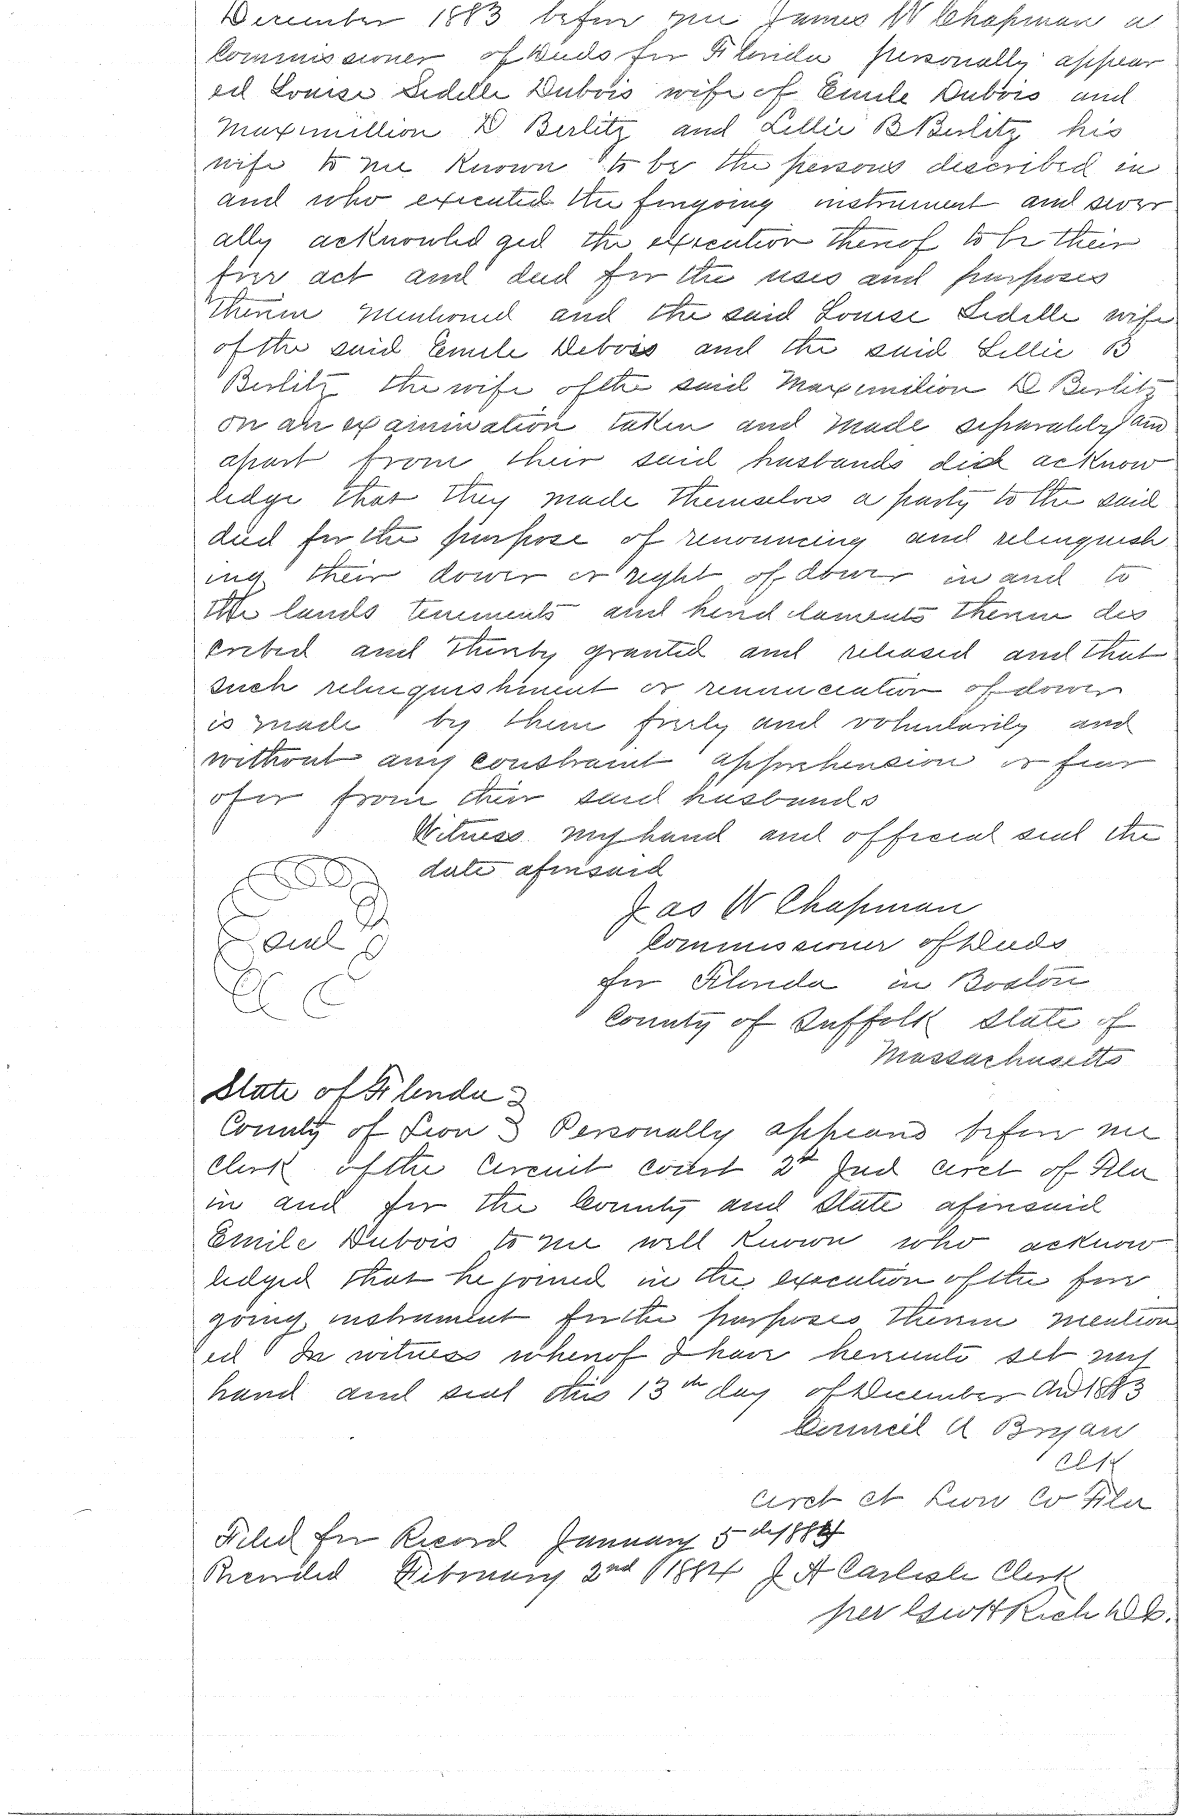 December 1883 before me James W Chapman a
Commissioner of Deeds for Florida personally appear
ed Louise Sedelle Dubois wife of Emile Dubois and
Maximillion D Berlitz and Lillie B Berlitz his
wife to me Known to be the persons described in
and who executed the foregoing instrument and sever
ally acknowledged the execution thereof to be their
free act and deed for the uses and purposes
therein mentioned and the said Louise Sedelle wife
of the said Emile Debois and the said Lillie B
Berlitz the wife of the said Maximilion D Berlitz
on an examination taken and made separately and
apart from their said husbands did acknow
ledge that they made themselves a party to the said
deed for the purpose of renouncing and relinquish
ing their dower or right of dower in and to
the lands tenements and heriditaments therein des
cribed and thereby granted and released and that
such relinquishment or renunciation of dower
is made by them freely and voluntarily and
without any constraint apprehension or fear
of or from their said husbands
Witness my hand and official seal the
date aforesaid
seal
Jas W Chapman
Commissioner of Deeds
for Florida in Boston
County of Suffolk State of
Massachusetts
State of Florida
County of Leon Personally appeared before me
Clerk of the Circuit court 2d Jud Circt of Fla
in and for the County and State aforesaid
Emile Dubois to me well Known who acknow
ledged that he joined in the execution of the fore
going instrument for the purposes therein mention
ed In witness whereof I have hereunto set my
hand and seal this 13th day of December AD 1883
Council A Bryan
Clk
Circt Ct Leon Co Fla
Filed for Record January 5th 1884
Recorded February 2nd 1884 J A Carlisle Clerk
per Geo H Rich D C.